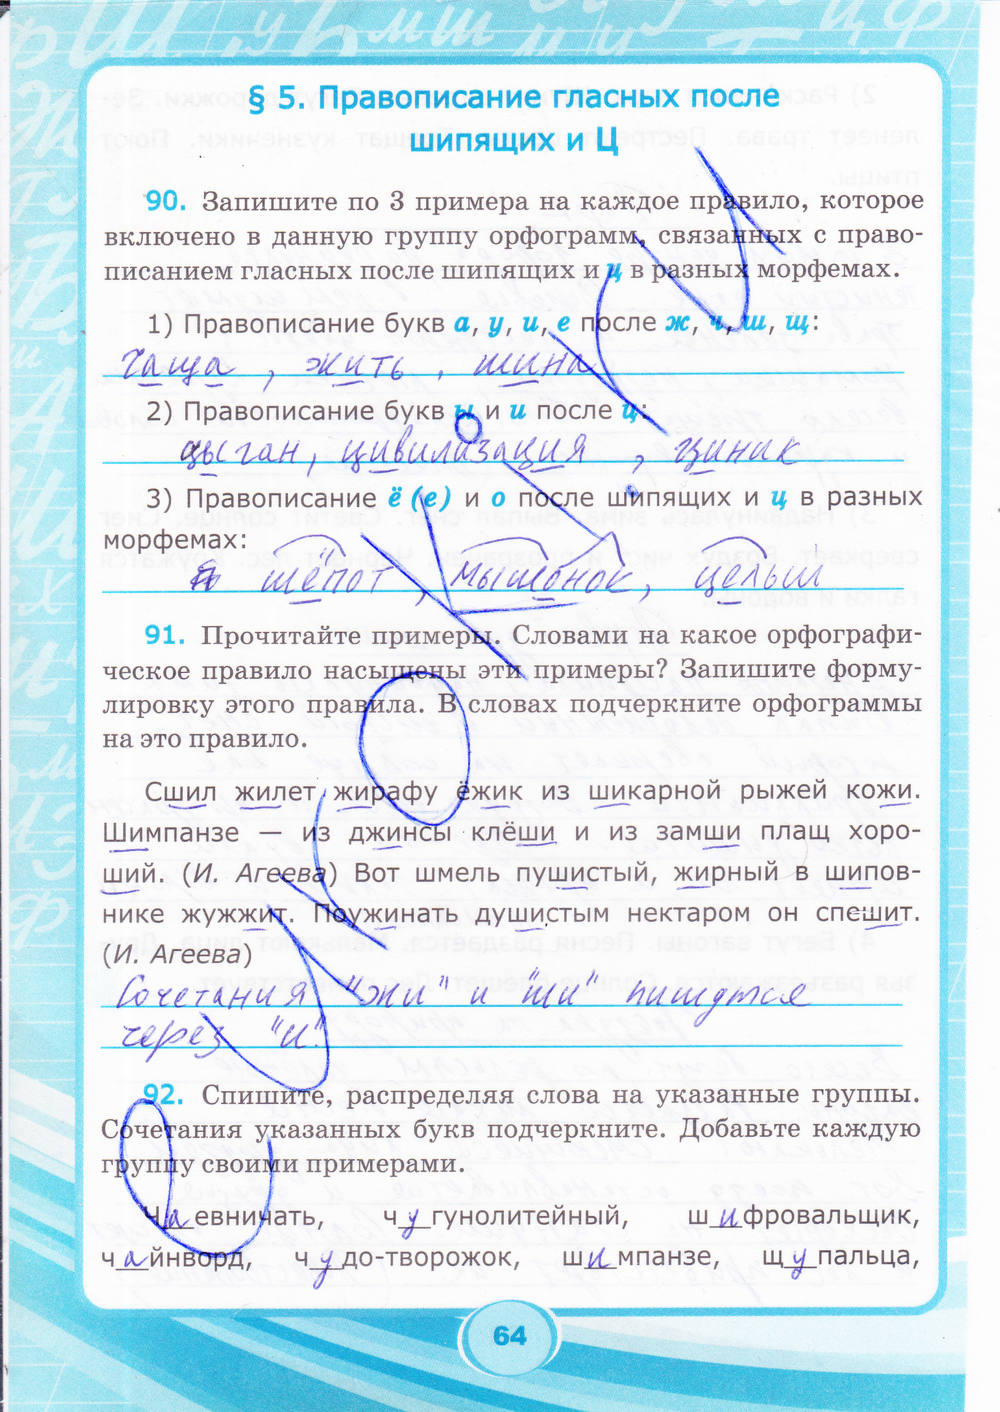 § 5. Правописание гласных после
шипящих и Ц
90. Запишите по 3 примера на каждое правило, которое
включено в данную группу орфограмм, связанных с право-
писанием гласных после шипящих и ц в разных морфемах.
1) Правописание букв а, у, и, е после ж, ч, ш, щ:
Чаща, жить, шина
2) Правописание букв ы и и после ц:
цыган, цивилизация, циник
3) Правописание ё (е) и о после шипящих и ц в разных
морфемах:
шёпот, мышонок, целый
91. Прочитайте примеры. Словами на какое орфографи-
ческое правило насыщены эти примеры? Запишите форму-
лировку этого правила. В словах подчеркните орфограммы
на это правило.
Сшил жилет жирафу ёжик из шикарной рыжей кожи.
Шимпанзе — из джинсы клёши и из замши плащ хоро-
ший. (И. Агеева) Вот шмель пушистый, жирный в шипов-
нике жужжит. Поужинать душистым нектаром он спешит.
(И. Агеева)
Сочетания "жи" и "ши" пишутся
через "и".
92. Спишите, распределяя слова на указанные группы.
Сочетания указанных букв подчеркните. Добавьте каждую
группу своими примерами.
Чаевничать, чугунолитейный, шифровальщик,
чайнворд, чудо-творожок, шимпанзе, щупальца,
64